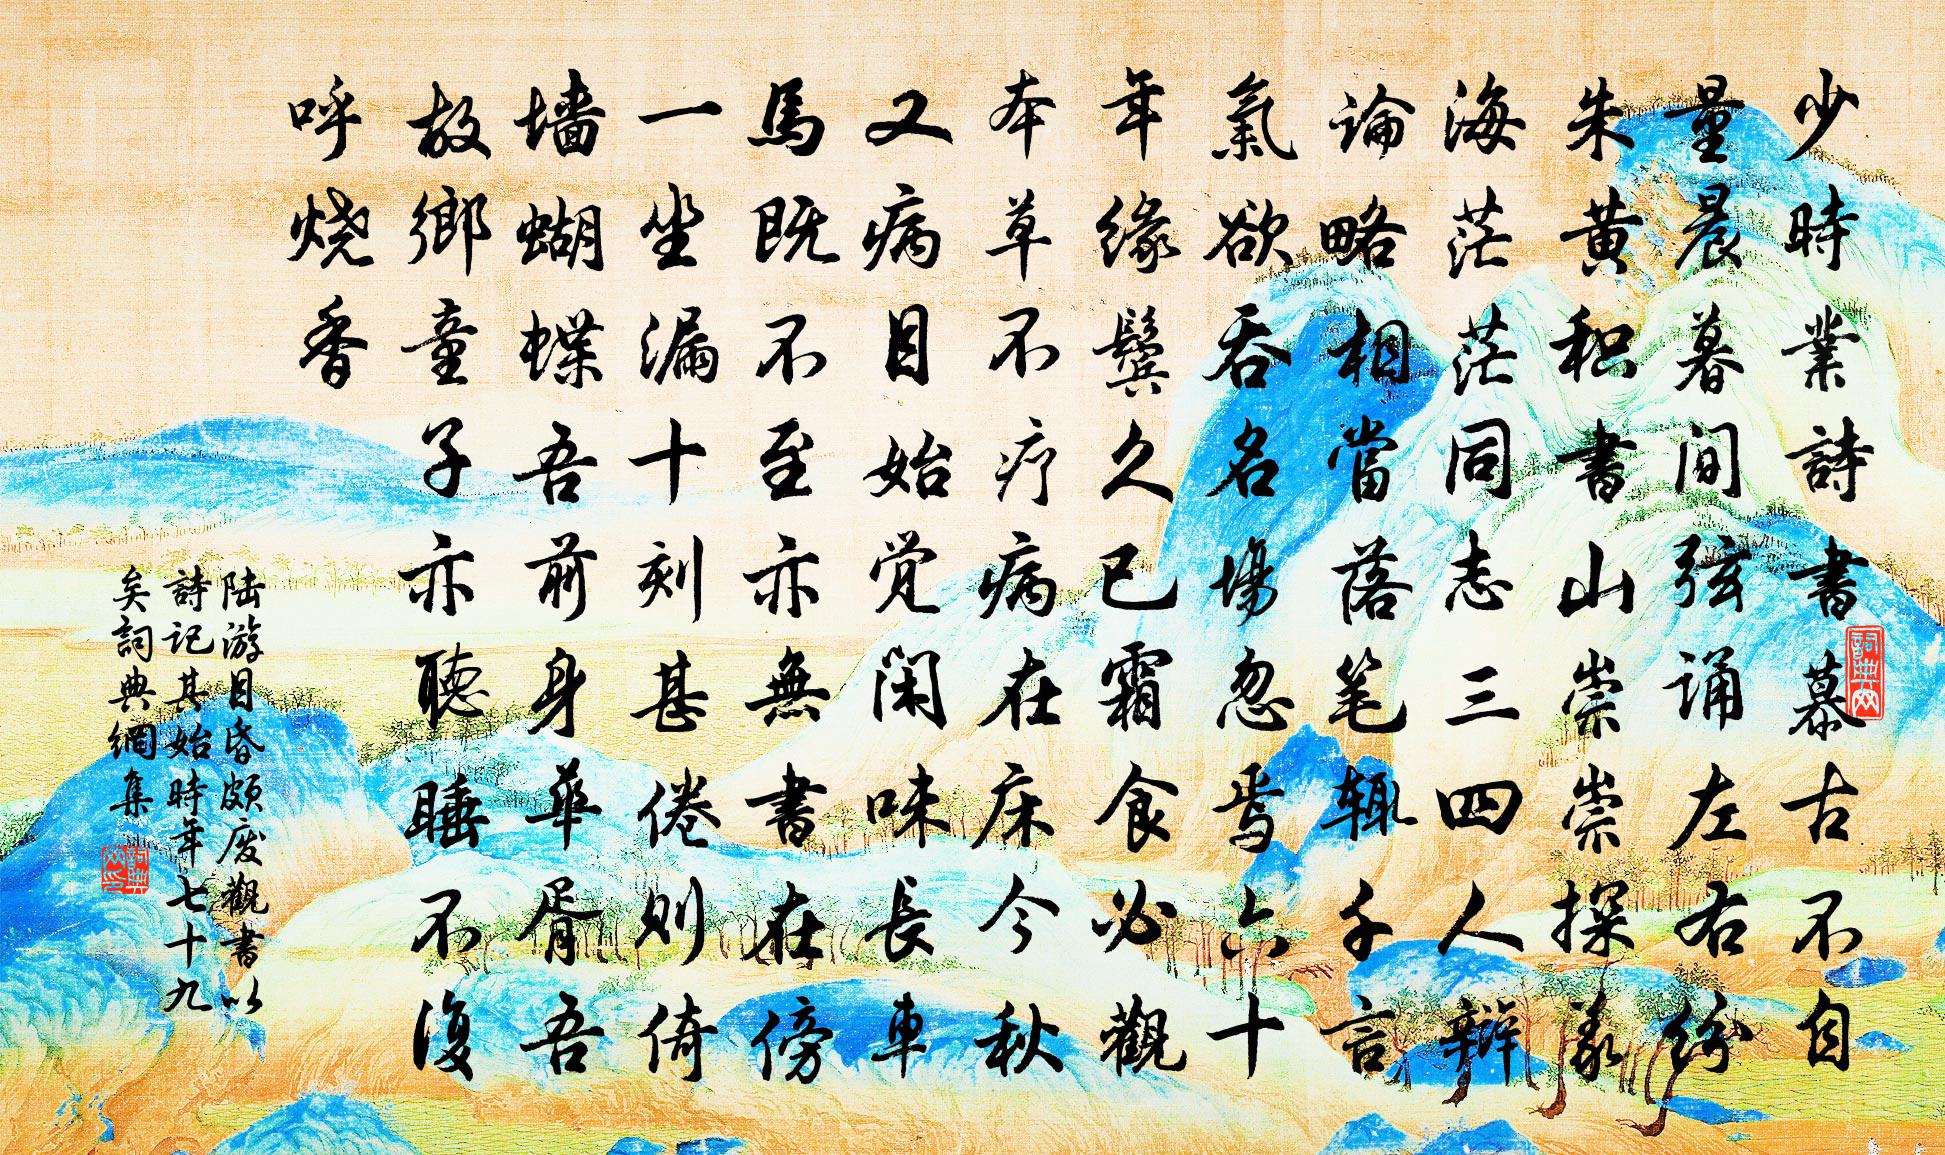 少時業詩書慕古不自
量晨暮间弦诵左右纷
朱黄积書山崇崇探義
海茫茫同志三四人辩
論略相當落笔辄千言
氣欲吞名場忽焉六十
年缘鬓久已霜食必觀
本草不疗病在床今秋
又病目始觉闲味長車
馬既不至亦無書在傍
一坐漏十刻甚倦则倚
墙蝴蝶吾前身華胥吾
故鄉童子亦聴睡不復
呼烧香
陆游目昏颇废觀書以
詩记其始時年七十九
矣詞典網集
詞典网